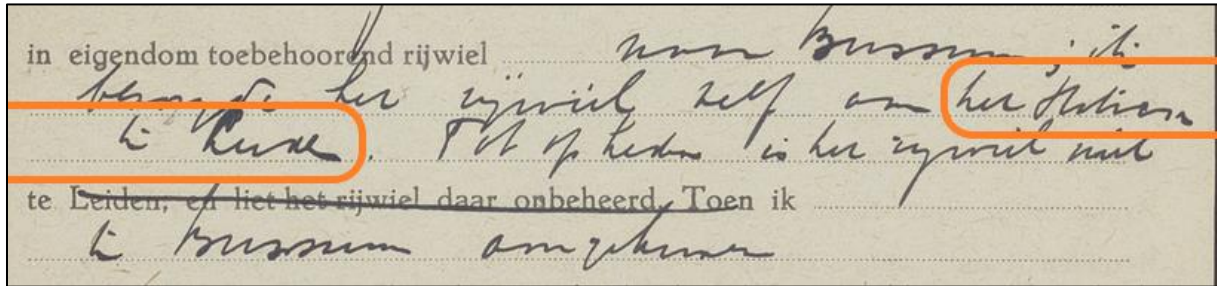 in eigendom toebehoorend rijwiel naar Bussum; ik
bezorgde het rijwiel zelf aan het Station
te Leiden. Tot op heden is het rijwiel niet
te Leiden, en liet het rijwiel daar onbeheerd. Toen ik
te Bussum aangekomen